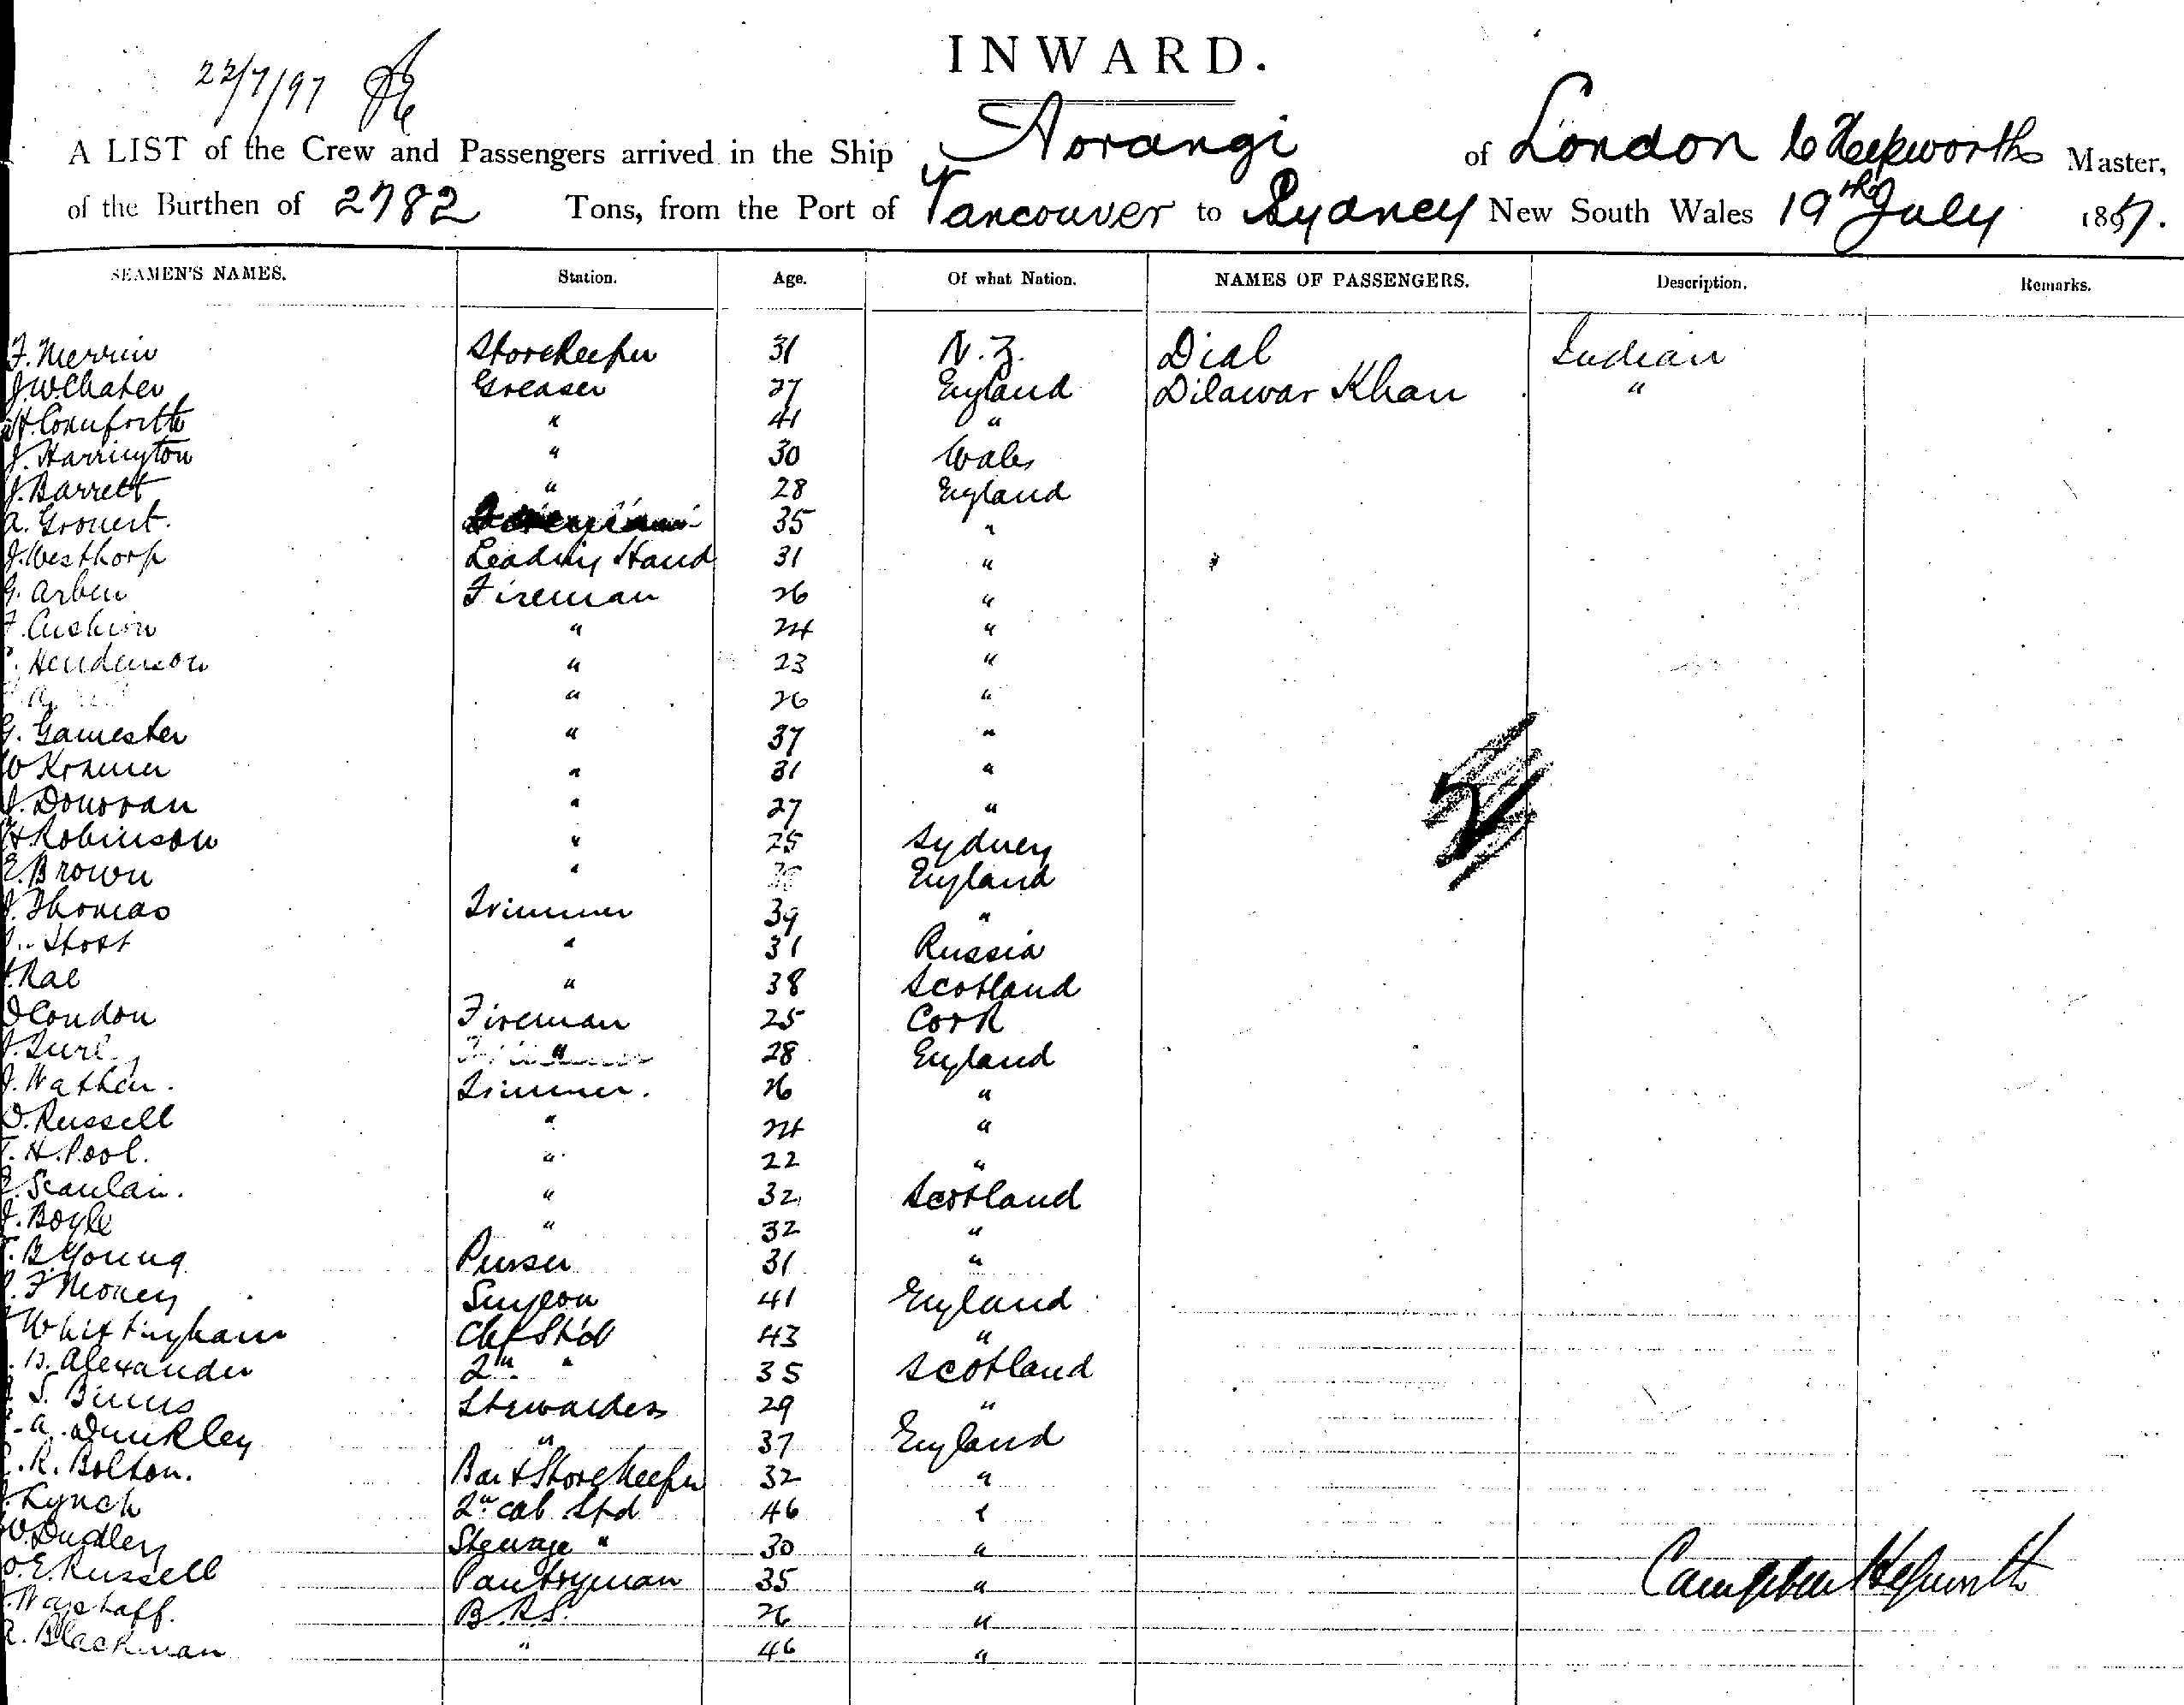 INWARD.
22/7/97
A LIST of the Crew and Passengers arrived in the Ship Aorangi of London C Hepworth Master,
of the Burthen of 2782 Tons, from the Port of Vancouver to Sydney New South Wales 19th July 1897.
SEAMEN'S NAMES. Station. Age. Of what Nation. NAMES OF PASSENGERS. Description. Remarks.
F. Merrin Storekeeper 31 N.Z. Dial Indian
J.W. Chater Greaser 27 England Dilawar Khan "
H. Cornforth " 41 "
J. Harrington " 30 Wales
J. Barrett " 28 England
A. Grouert. 35 "
J. Westhorp Leading Hand 31 "
G. Arben Fireman 26 "
F. Cushion " 24 "
Henderson " 23 "
" 26 "
G. Gamester " 37 "
W Kramer " 31 "
J. Donovan " 27 "
H Robinson " 25 Sydney
E. Brown " England
J. Thomas Trimmer 39 "
Stost " 31 Russia
Rae " 38 Scotland
D Condon Fireman 25 Cork
J. Turl " 28 England
J. Wathen. Trimmer. 26 "
D. Russell " 24 "
T. H. Pool. " 22 "
E. Scanlan. " 32 Scotland
J. Boyle " 32 "
B Young Purser 31 "
F Money Surgeon 41 England
Whittingham Chf Std 43 "
B. Alexander 2n " 35 Scotland
S. Binns Stewardess 29 "
A. Dunkley " 37 England
R. Bolton. Bar & Storekeeper 32 "
Lynch 2n cab Std 46 "
W. Dudley Steerage " 30 "
O.E. Russell Pantryman 35 "
Wagstaff. B.R.S. 26 "
A. Blackman " 46 "
2
Campbell Hepworth